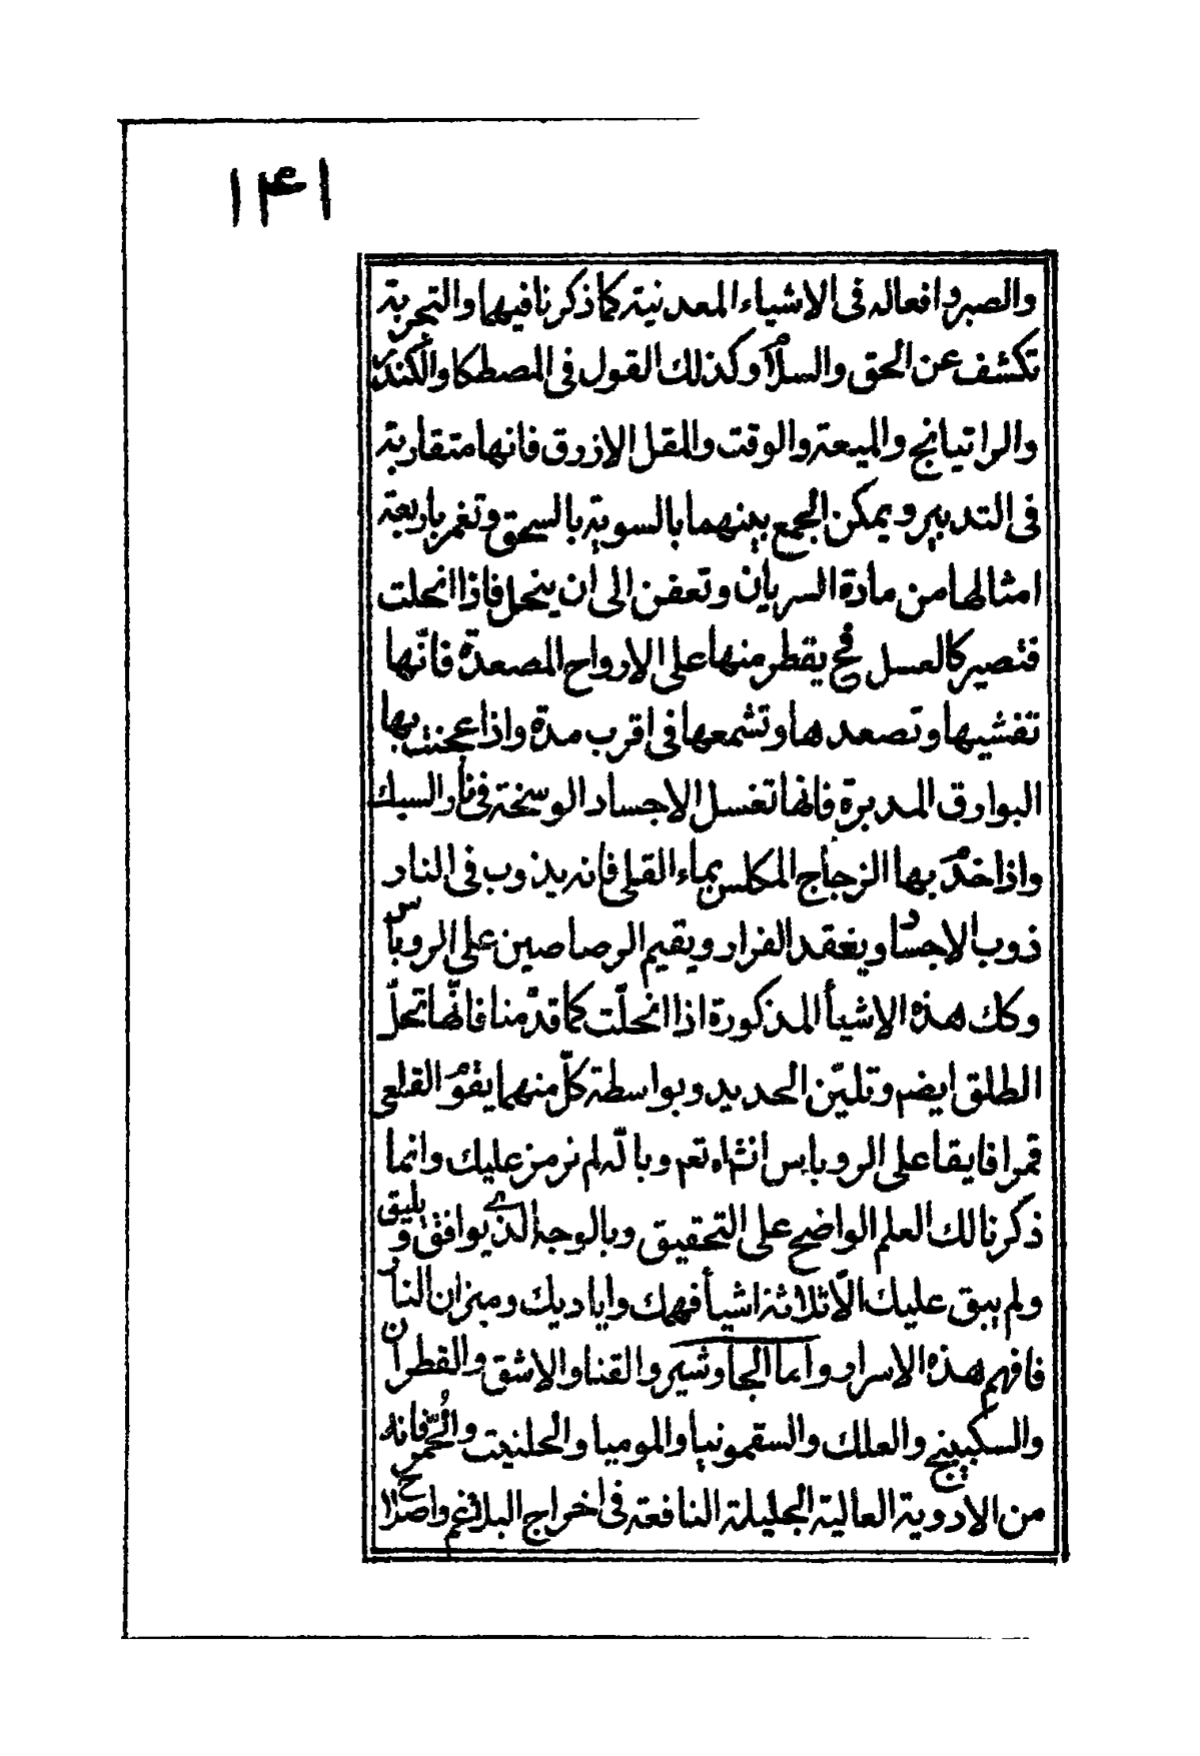 ١٤١
والصبر وافعاله فى الاشياء المعدنية كما ذكرنا فيهما والتجربة
تكشف عن الحق والسلام وكذلك القول فى المصطكا والكندر
والراتيانج والميعة والوقت والمقل الازرق فانها متقاربة
فى التدبير ويمكن الجمع بينهما بالسوية بالسحق وتغمر باربعة
امثالها من مادة السريان وتعفن الى ان ينحل فاذا انحلت
فتصير كالعسل فح يقطر منها على الارواح المصعدة فانّها
تفشيها وتصعدها وتشمعها فى اقرب مدة واذا عجنت بها
البوارق المدبرة فانها تغسل الاجساد الوسخة فى نار السبك
واذا خدم بها الزجاج المكلس بماء القلى فانه يذوب فى النار
ذوب الاجساد ويعقد الفرار ويقيم الرصاصين على الروباس
وكك هذه الاشيأ المذكورة اذا انحلّت كما قدّمنا فانّها تحلّ
الطلق ايضم وتليّن الحديد وبواسطة كلّ منهما يقوم القلعى
قمرا فايقا على الروباس انشاء تعم وبالله لم نرمز عليك وانما
ذكرنا لك العلم الواضح على التحقيق وبالوجه الذى يوافق ويليق
ولم يبق عليك الّا ثلاثة اشيأ فهمك واياديك وميزان النار
فافهم هذه الاسرار واما الجاوشير والقنا والاشق والقطران
والسكبينج والعلك والسقمونيا والموميا والحلتيت والخمر فانه
من الادوية العالية الجليلة النافعة فى اخراج البلاغم واصلاح